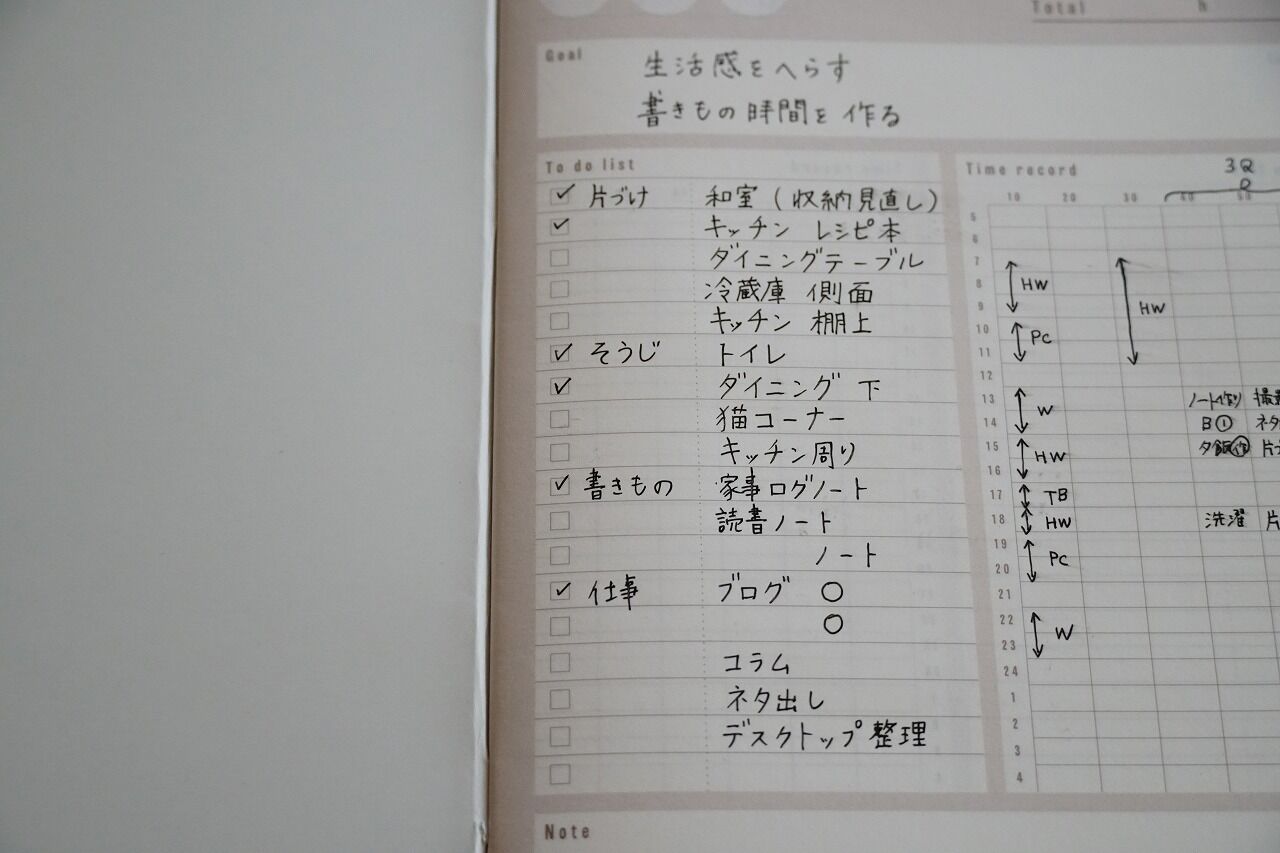 Total h
Goal
生活感をへらす
書きもの時間を作る
To do list
✓ 片づけ 和室(収納見直し)
✓ キッチン レシピ本
ダイニングテーブル
冷蔵庫 側面
キッチン 棚上
✓ そうじ トイレ
✓ ダイニング 下
猫コーナー
キッチン周り
✓ 書きもの 家事ログノート
読書ノート
ノート
✓ 仕事 ブログ ○
○
コラム
ネタ出し
デスクトップ整理
Time record
3Q
10 20 30 40 50
5
6
7
8 HW
9 HW
10 PC
11
12
13 W ノート作り
14 B① ネタ
15 HW 夕飯作
16
17 TB
18 HW 洗濯 片
19 PC
20
21
22 W
23
24
1
2
3
4
Note